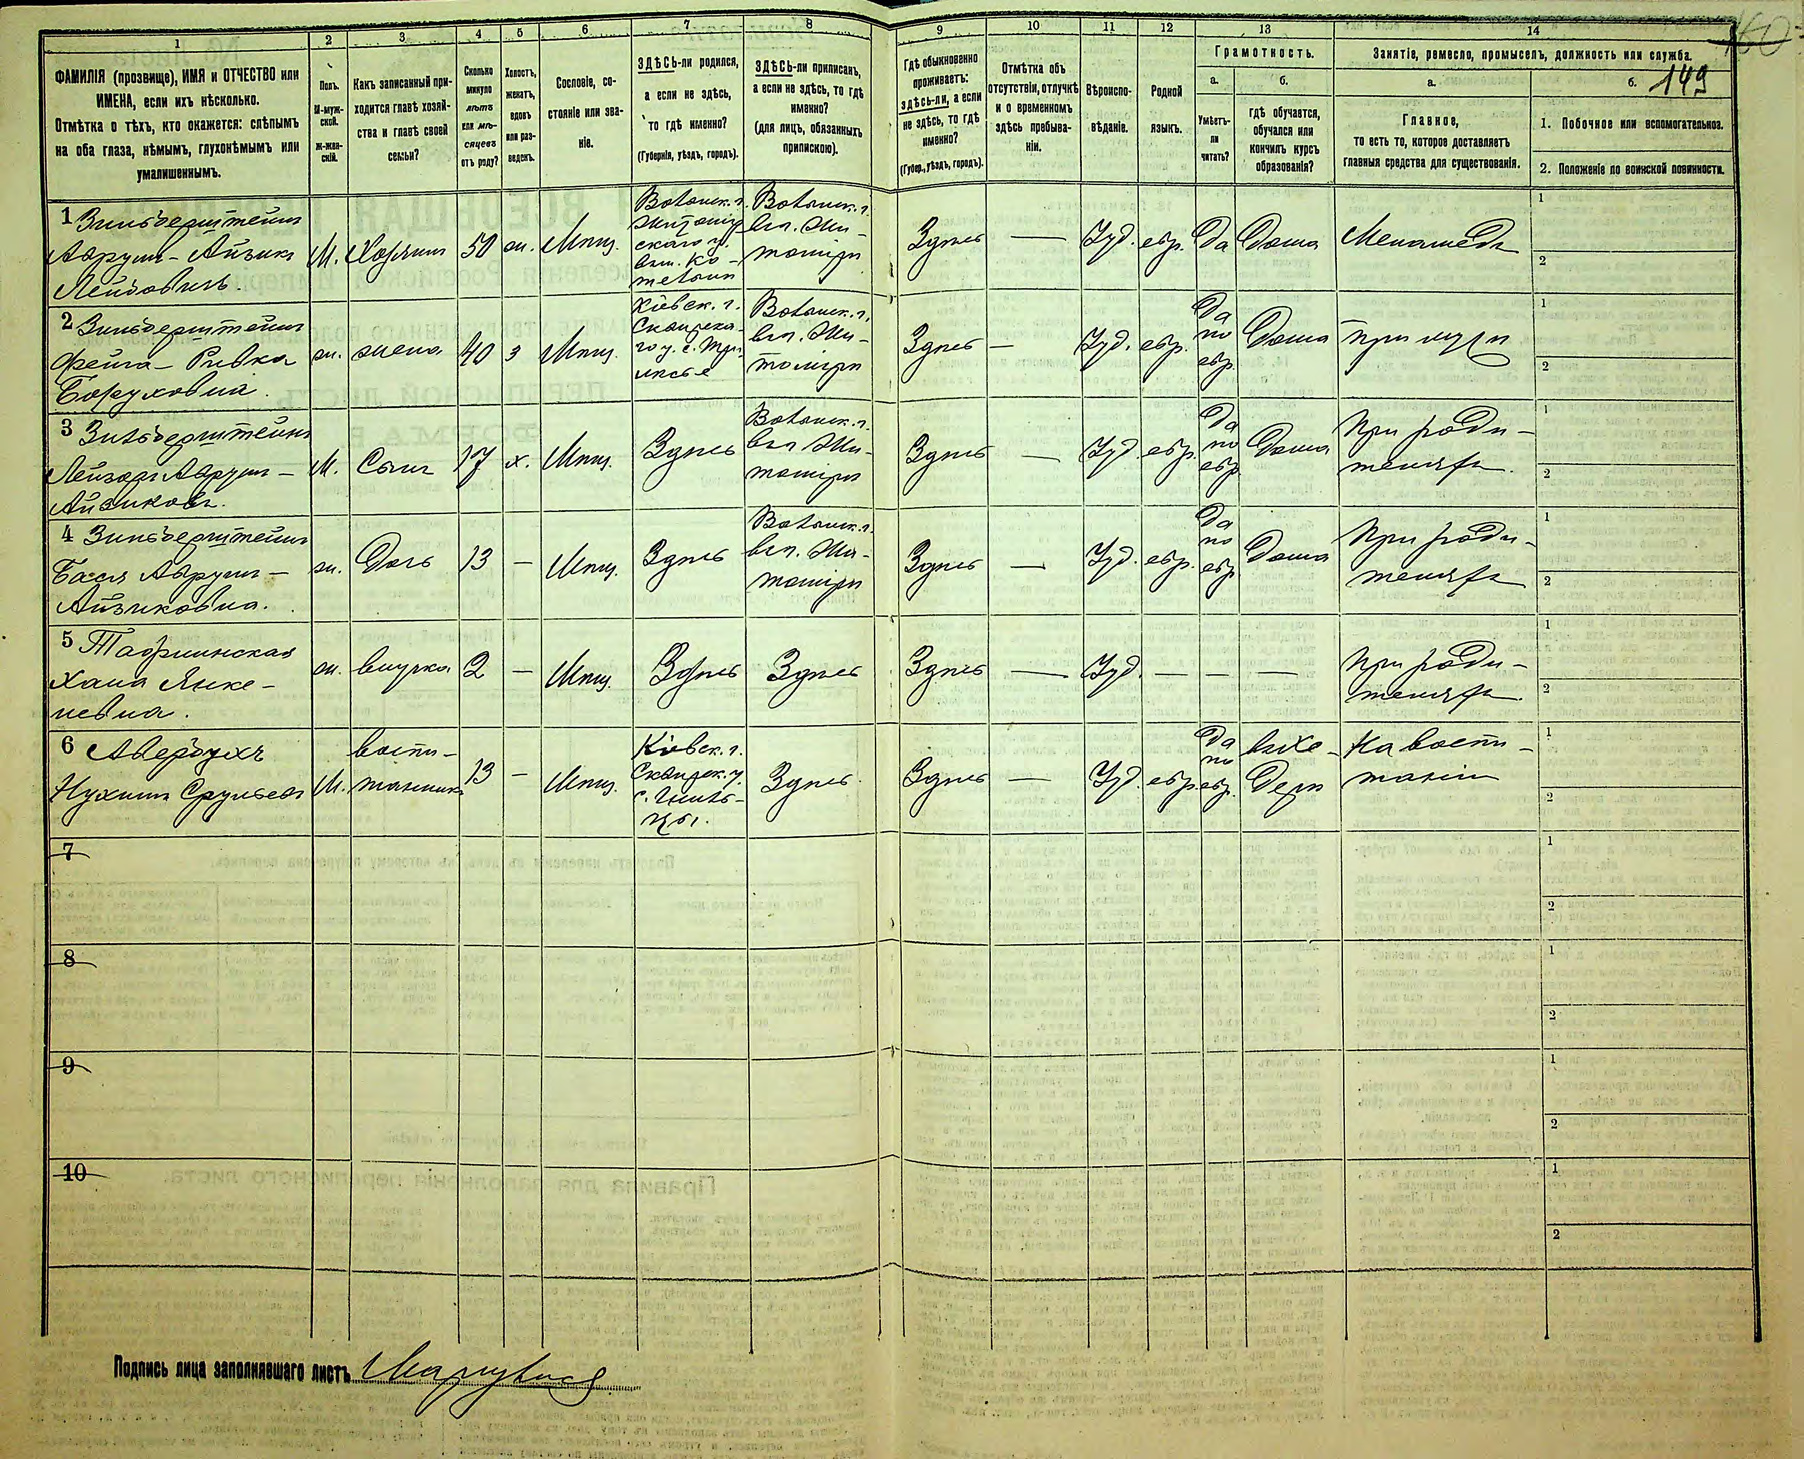 160
149
1 2 3 4 5 6 7 8 9 10 11 12 13 14
ФАМИЛІЯ (прозвище), ИМЯ и ОТЧЕСТВО или
ИМЕНА, если ихъ нѣсколько.
Отмѣтка о тѣхъ, кто окажется: слѣпымъ
на оба глаза, нѣмымъ, глухонѣмымъ или
умалишеннымъ.
Полъ.
М-муж-
ской.
Ж-жен-
скій.
Какъ записанный при-
ходится главѣ хозяй-
ства и главѣ своей
семьи?
Сколько
минуло
лѣтъ
или мѣ-
сяцевъ
отъ роду?
Холостъ,
женатъ,
вдовъ
или раз-
веденъ.
Сословіе, со-
стояніе или зва-
ніе.
ЗДѢСЬ-ли родился,
а если не здѣсь,
то гдѣ именно?
(Губернія, уѣздъ, городъ).
ЗДѢСЬ-ли приписанъ,
а если не здѣсь, то гдѣ
именно?
(для лицъ, обязанныхъ
припискою).
Гдѣ обыкновенно
проживаетъ:
здѣсь-ли, а если
не здѣсь, то гдѣ
именно?
(Губер., уѣздъ, городъ).
Отмѣтка объ
отсутствіи, отлучкѣ
и о временномъ
здѣсь пребыва-
ніи.
Вѣроиспо-
вѣданіе.
Родной
языкъ.
Грамотность.
а. б.
Умѣетъ-
ли
читать?
гдѣ обучается,
обучался или
кончилъ курсъ
образованія?
Занятіе, ремесло, промыселъ, должность или служба.
а. б.
Главное,
то есть то, которое доставляетъ
главныя средства для существованія.
1. Побочное или вспомогательное.
2. Положеніе по воинской повинности.
1 Зильберштейнъ
Аврумъ-Айзикъ
Лейбовичъ.
М. Хозяинъ 50 ж. Мѣщ.
Волынск. г.
Житомір
скаго у.
Волынск. г.
въ г. Жи-
томірѣ
Здѣсь — Іуд. евр. Да Дома Меламедъ
1
2
2 Зильберштейнъ
Фейга-Ривка
Боруховна.
ж. жена 40 з Мѣщ.
Кіевск. г.
Сквирска-
го у. с.
Волынск. г.
въ г. Жи-
томірѣ
Здѣсь — Іуд. евр. Да по евр. Дома При мужѣ
1
2
3 Зильберштейнъ
Лейзоръ Аврум-
Айзиковъ.
М. Сынъ 17 х. Мѣщ. Здѣсь
Волынск. г.
въ г. Жи-
томірѣ
Здѣсь — Іуд. евр. Да по евр. Дома
При роди-
теляхъ.
1
2
4 Зильберштейнъ
Бася Аврум-
Айзиковна.
ж. Дочь 13 — Мѣщ. Здѣсь
Волынск. г.
въ г. Жи-
томірѣ
Здѣсь — Іуд. евр. Да по евр. Дома
При роди-
теляхъ
1
2
5
Хана Янке-
левна.
ж. внучка 2 — Мѣщ. Здѣсь Здѣсь Здѣсь — Іуд. — — —
При роди-
теляхъ.
1
2
6 Авербухъ
Нухимъ Срулевъ
М.
воспи-
танникъ
13 — Мѣщ.
Кіевск. г.
Сквирск. у.
Здѣсь Здѣсь — Іуд. евр. Да по евр.
въ Хе-
дерѣ
На воспи-
таніи
1
2
7
1
2
8
1
2
9
1
2
10
1
2
Подпись лица заполнявшаго листъ